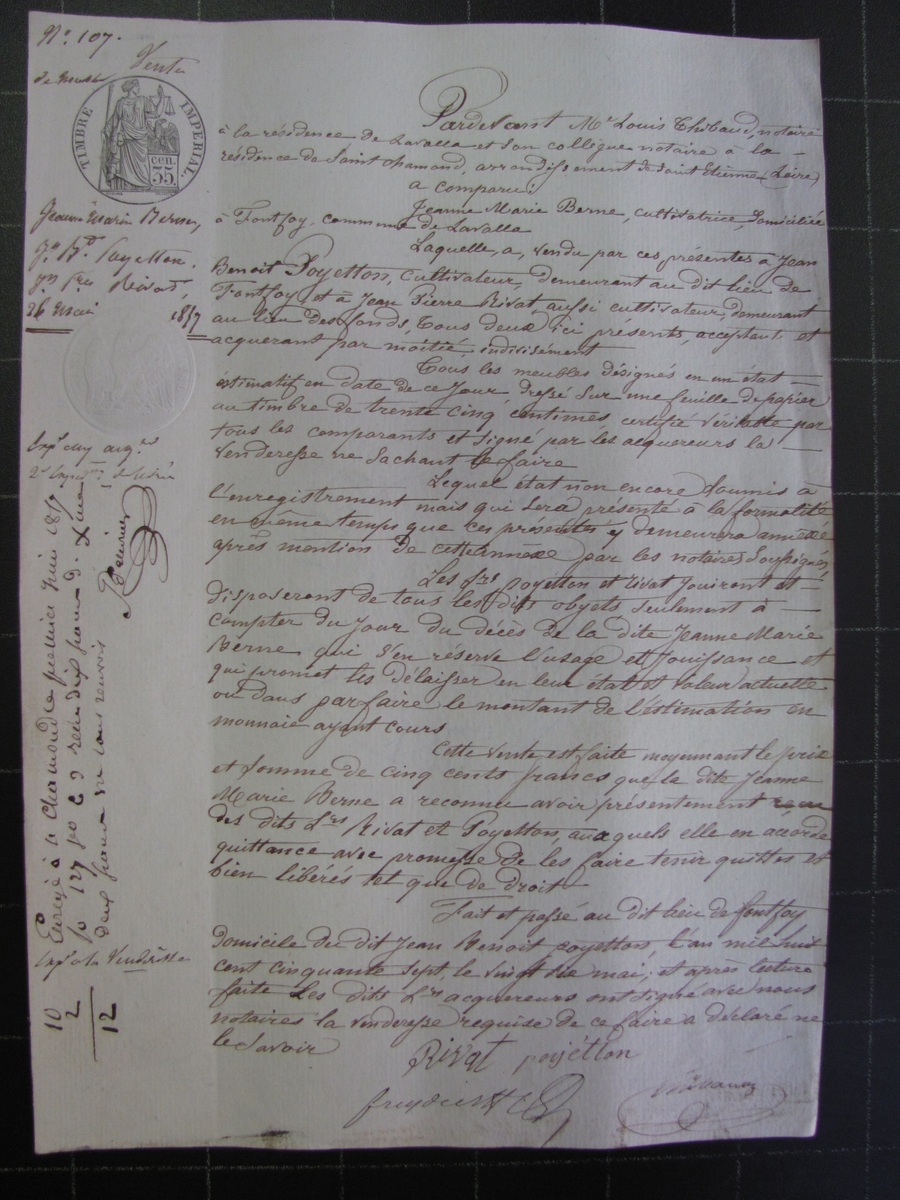 No. 107.
Vente
de meub
TIMBRE IMPERIAL
35 cen.
Jeanne Marie Berne,
Jn Bt Poyetton,
Jn Pre Rivat,
26 Mai 1857
Pardevant Me Louis Thibaud, notaire
à la résidence de Lavalla et son collègue notaire à la
résidence de Saint Chamond, arrondissement de Saint Etienne (Loire)
a comparu:
Jeanne Marie Berne, cultivatrice, domiciliée
à Fontfoy, commune de Lavalla
Laquelle, a, vendu par ces présentes à Jean
Benoit Poyetton, cultivateur, demeurant au dit lieu de
Fontfoy, et à Jean Pierre Rivat aussi cultivateur, demeurant
au lieu des fonds, tous deux ici présents, acceptant et
acquerant par moitié, indivisément
Tous les meubles désignés en un état
estimatif en date de ce jour dressé sur une feuille de papier
au timbre de trente cinq centimes, certifié véritable par
tous les comparants et signé par les acquereurs la
venderesse ne sachant le faire
Lequel état non encore soumis à
l'enregistrement mais qui sera présenté à la formalité
en même temps que ces présentes y demeurera annexé
après mention de cette annexe par les notaires soussignés
Les srs Poyetton et Rivat jouiront et
disposeront de tous les dits objets seulement à
compter du jour du décès de la dite Jeanne Marie
Berne qui s'en réserve l'usage et jouissance et
qui promet les délaisser en leur état et valeur actuelle
ou dans parfaire le montant de l'éstimation en
monnaie ayant cours
Cette vente est faite moyennant le prix
et somme de cinq cents francs que la dite Jeanne
Marie Berne a reconnu avoir présentement reçu
des dits Srs Rivat et Poyetton, auxquels elle en accorde
quittance avec promesse de les faire tenir quittes et
bien libérés tel que de droit
Fait et passé au dit lieu de fontfoy
domicile du dit Jean Benoit poyetton, l'an mil huit
cent cinquante sept, le vingt six mai; et après lecture
faite les dits Srs acquereurs ont signé avec nous
notaires la venderesse requise de ce faire a déclaré ne
le savoir
Rivat poyétton
Expn aux acqrs
Enregé à St Chamond le premier juin 1857
fo 127 Vo C 3 reçu dix francs d. Xime
deux francs
Expn à la Venderesse
10
2
12